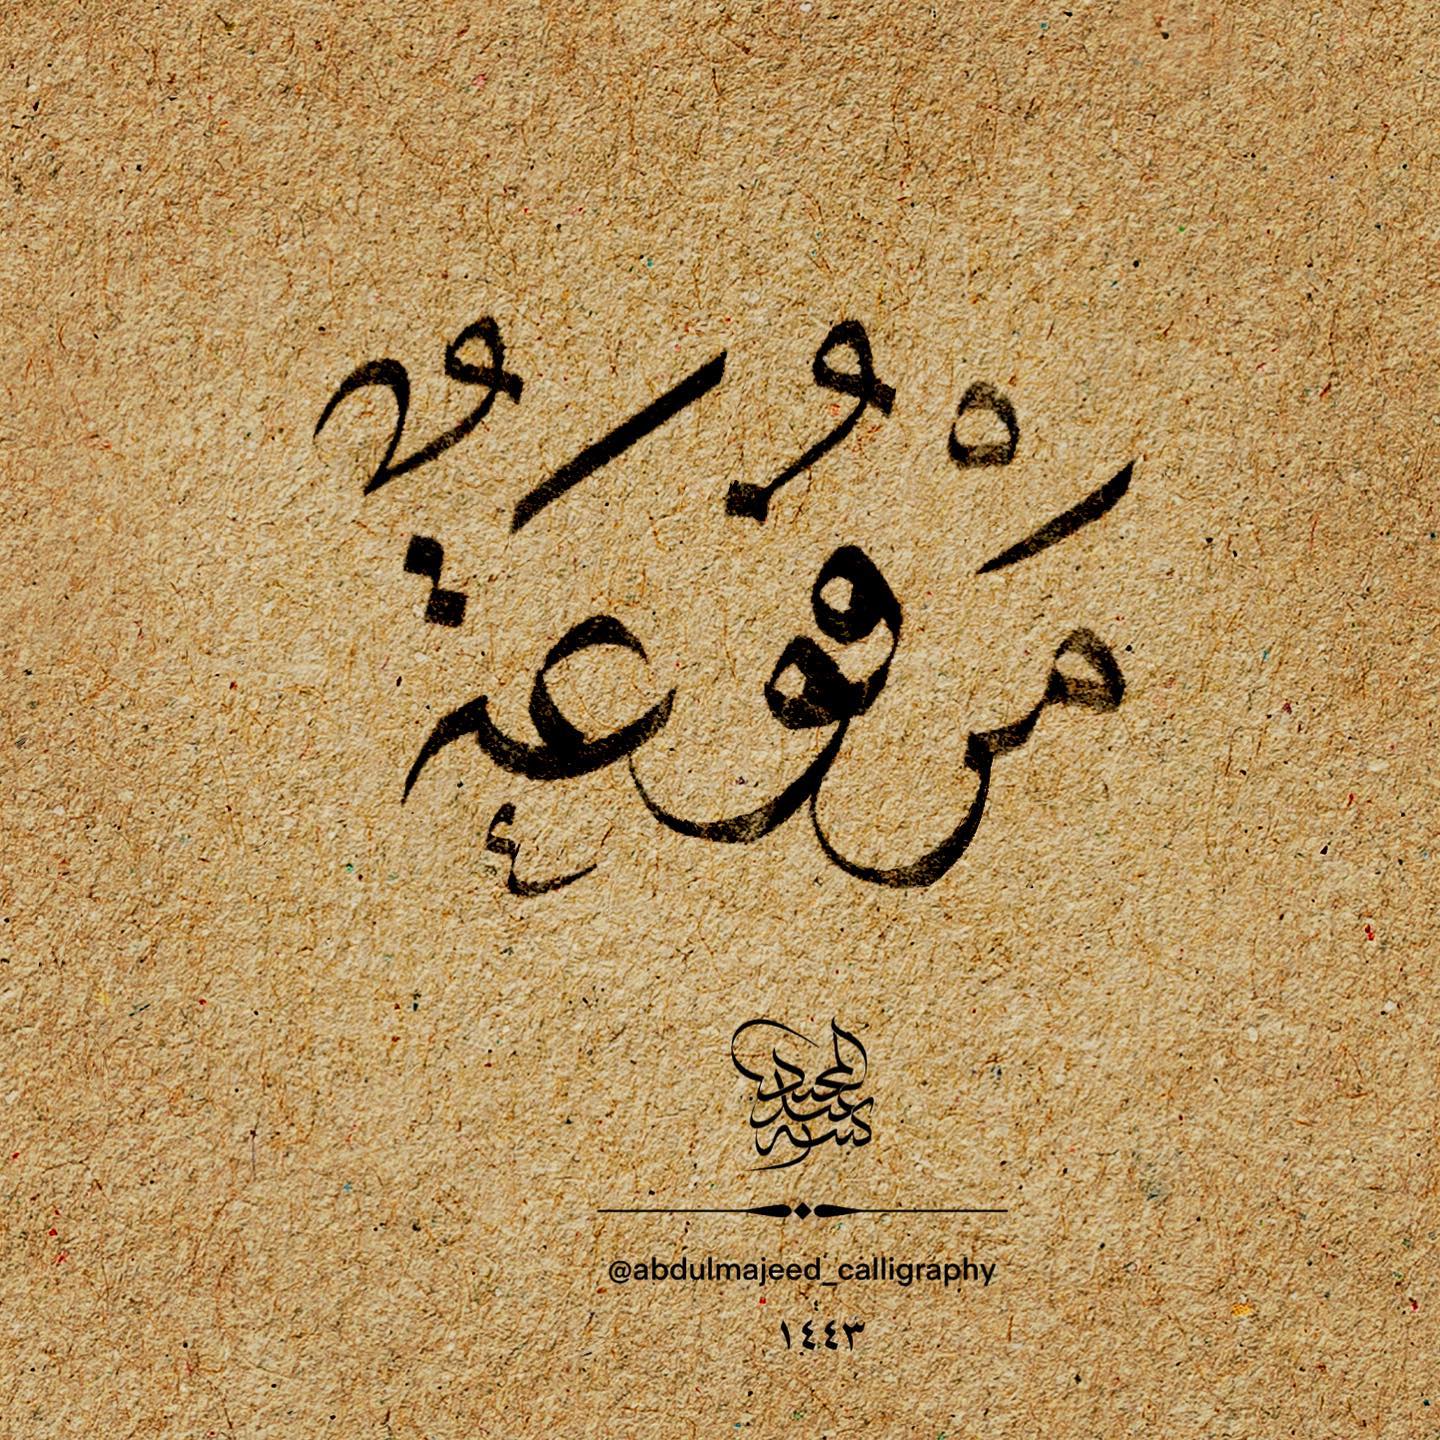 مَرْفُوعَةٌ
كتبه عبد المجيد
@abdulmajeed_calligraphy
١٤٤٣